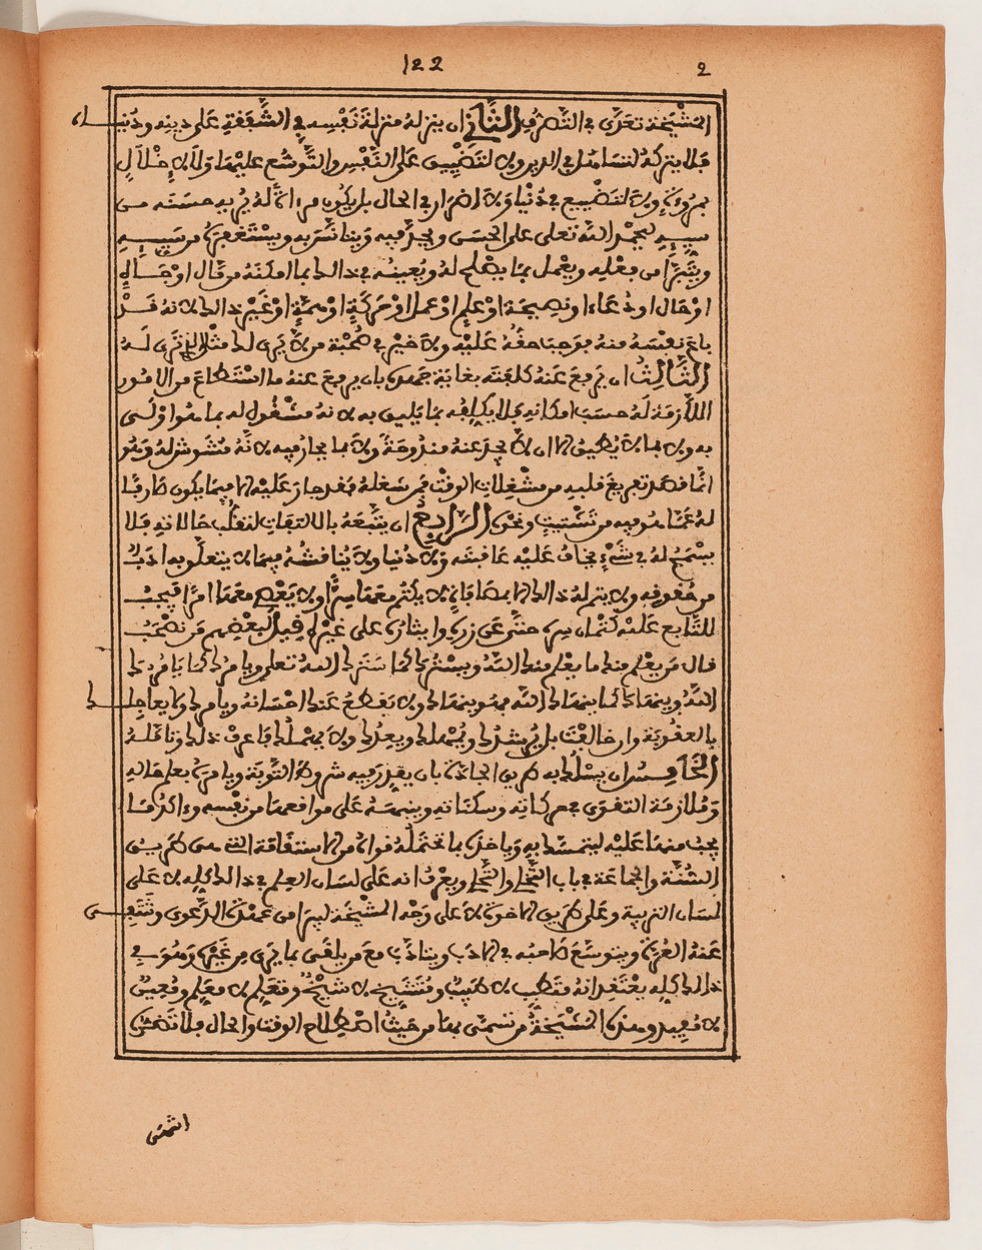 122
2
المشيخة تعدّى في التصرف الثاني ان ينزله منزلة نفسه في الشفقة على دينه ودنياه
فلا يتركه لتساهل في الدين ولا لتضييق على النفس والتوسّع عليها ولا لاخلال
بمروءة ولا لتضييع في دنيا ولا اضرار في الحال بل يكون مرءاة له يريه حسنه من
سيئه ليحمد الله تعلى على الحسن ويجد فيه ويتاسّى به ويستغفره من سيئه
ويتبرّأ من فعله ويعمل بما يصلح له ويعينه في ذالك بما امكنه من قال او جاه
او حال او دعاء او نصيحة او علم او عمل او حركة او همّة او غير ذالك لانه قد
باع نفسه منه فوجب حقه عليه ولا خير في صحبة من لا يرى لك مثل الذي ترى له
الثالث ان يرفع عنه كلفته بغاية جهده بان يرفع عنه ما استطاع من الامور
اللازمة له حسب امكانه فلا يكلفه بما يليق به لانه مشغول له بما هو اولى
به ولا بما لا يطيق الا ان لا يجد عنه مندوحة ولا بما يجاز فيه لانه مشوش له وهو
انما قصد تفريغ قلبه من مشغلات الوقت فمن شغله فقد جار عليه الا فيما يكون صارفا
له عما هو فيه من تشتيت ونحوه الرابع ان يتبعه بالالتفات لتقلب حالاته فلا
يسمح له في شيء يخاف عليه عاقبته ولا دنيا ولا يناقشه فيما لا يتعلق به ادب
من حقوقه ولا يتم له ذالك الا بمصافاة لا يكتم معها سرا ولا يعصي معها امرا فيجب
للتابع عليه كتمان سره حتى عن زره وايثاره على غيره قيل لبعضهم من نصحب
قال من يعلم منك ما يعلم منك الله ويسترك كما سترك الله تعلى ويامرك كما يامرك
الله وينهاك كما ينهاك الله فهو ينهاك ولا يقطع عنك احسانه ويامرك ولا يعاجلك
بالعقوبة وان خالفت بل يرشدك ويمهلك ويعزك ولا يهملك فاعرف ذلك وتاملـه
الخامس ان يسلك به طريق الجادة بان يقرر فيه شروط التوبة ويامره بعلم حاله
وملازمة التقوى في حركاته وسكناته وينبهه على مواقعها من نفسه وءاكد ما
يجب منها عليه ليتمسك به وياخذه بما تحتمله قواه من الاستقامة التي هي طريق
السنة والجماعة في باب التخلي والتحلي ويعرف انه على لسان العلم في ذالك كله لا على
لسان التربية وعلى طريق الاخوة لا على وجه المشيخة ليبرأ من عهدة الدعوى وتنتفي
عنه الغرة ويتوسع صاحبه في الادب ويتادب مع من يلقى بما يرى من غيره وهو في
ذالك كله يعتقد انه متطبب لا طبيب ومتشيخ لا شيخ ومتعلم لا معلم ومعين
لا مفيد وهذه المشيخة من تسمى بها من حيث اصطلاح الوقت والحال فلا تصفى
انتهى